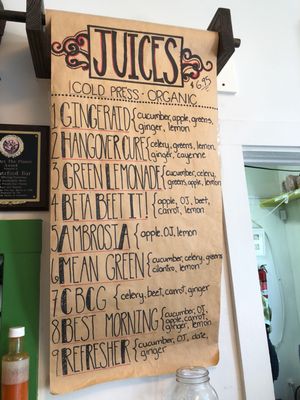 JUICES
$6.95
COLD PRESS · ORGANIC
1 GINGERAID { cucumber, apple, greens,
ginger, lemon
2 HANGOVER CURE { celery, greens, lemon,
ginger, cayenne
3 GREEN LEMONADE { cucumber, celery,
greens, apple, lemon
4 BETA BEET IT! { apple, OJ, beet,
carrot, lemon
5 AMBROSIA { apple, OJ, lemon
6 MEAN GREEN { cucumber, celery, greens
cilantro, lemon
7 CBCG { celery, beet, carrot, ginger
8 BEST MORNING { cucumber, OJ,
apple, carrot,
ginger, lemon
9 REFRESHER { cucumber, OJ, date,
ginger